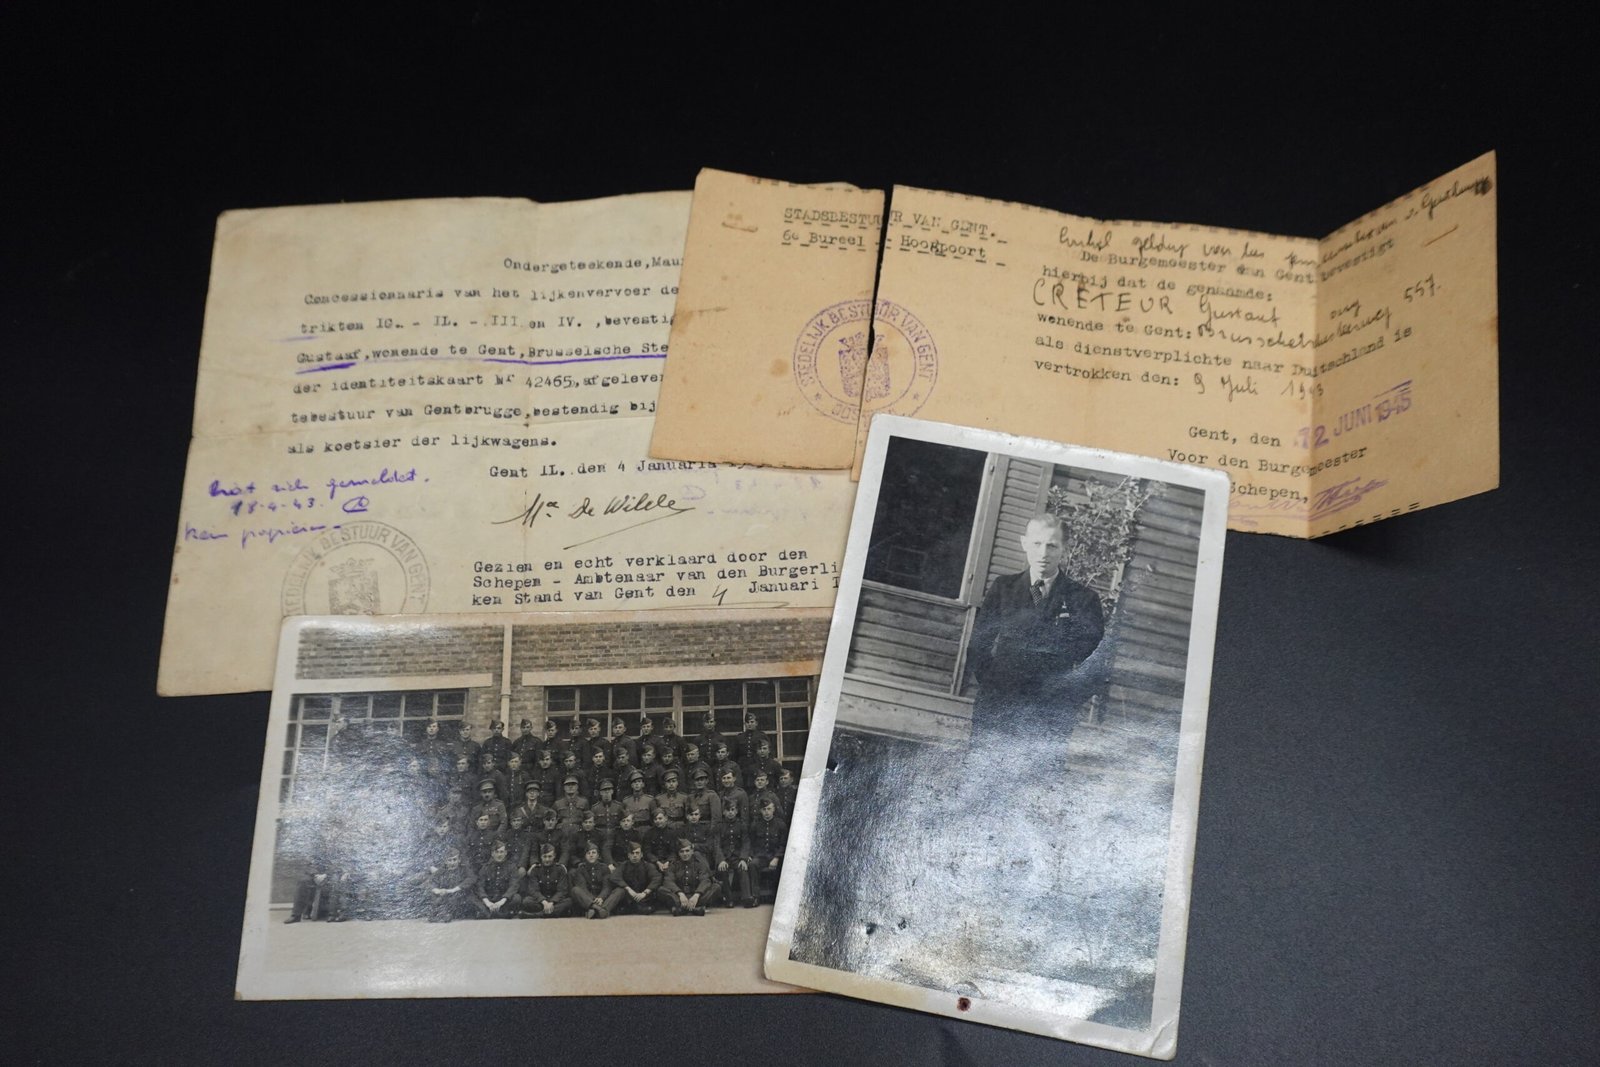 Ondergeteekende, Mau
Concessionnaris van het lijkenvervoer de
trikten I0. - II. - III en IV. ,bevestig
Gustaaf, wonende te Gent, Brusselsche Ste
der identiteitskaart Nr 42465, afgelever
tebestuur van Gentbrugge, bestendig bij
als koetsier der lijkwagens.
Gent II. den 4 Januari
Mce De Wilde
hat sich gemeldet.
18-4-43.
kein papieren
STUUR VAN GENT
Gezien en echt verklaard door den
Schepen - Ambtenaar van den Burgerli
ken Stand van Gent den 4 Januari 1
STADSBESTUUR VAN GENT.
6e Bureel - Hoogpoort
STEDELIJK BESTUUR VAN GENT
Enkel geldig voor
De Burgemeester van Gent bevestigt
hierbij dat de genaamde:
CRETEUR Gustaaf
wonende te Gent: Brusselschesteenweg 557.
als dienstverplichte naar Duitschland is
vertrokken den: 9 Juli 1943
Gent, den 12 JUNI 1945
Voor den Burgemeester
Schepen,